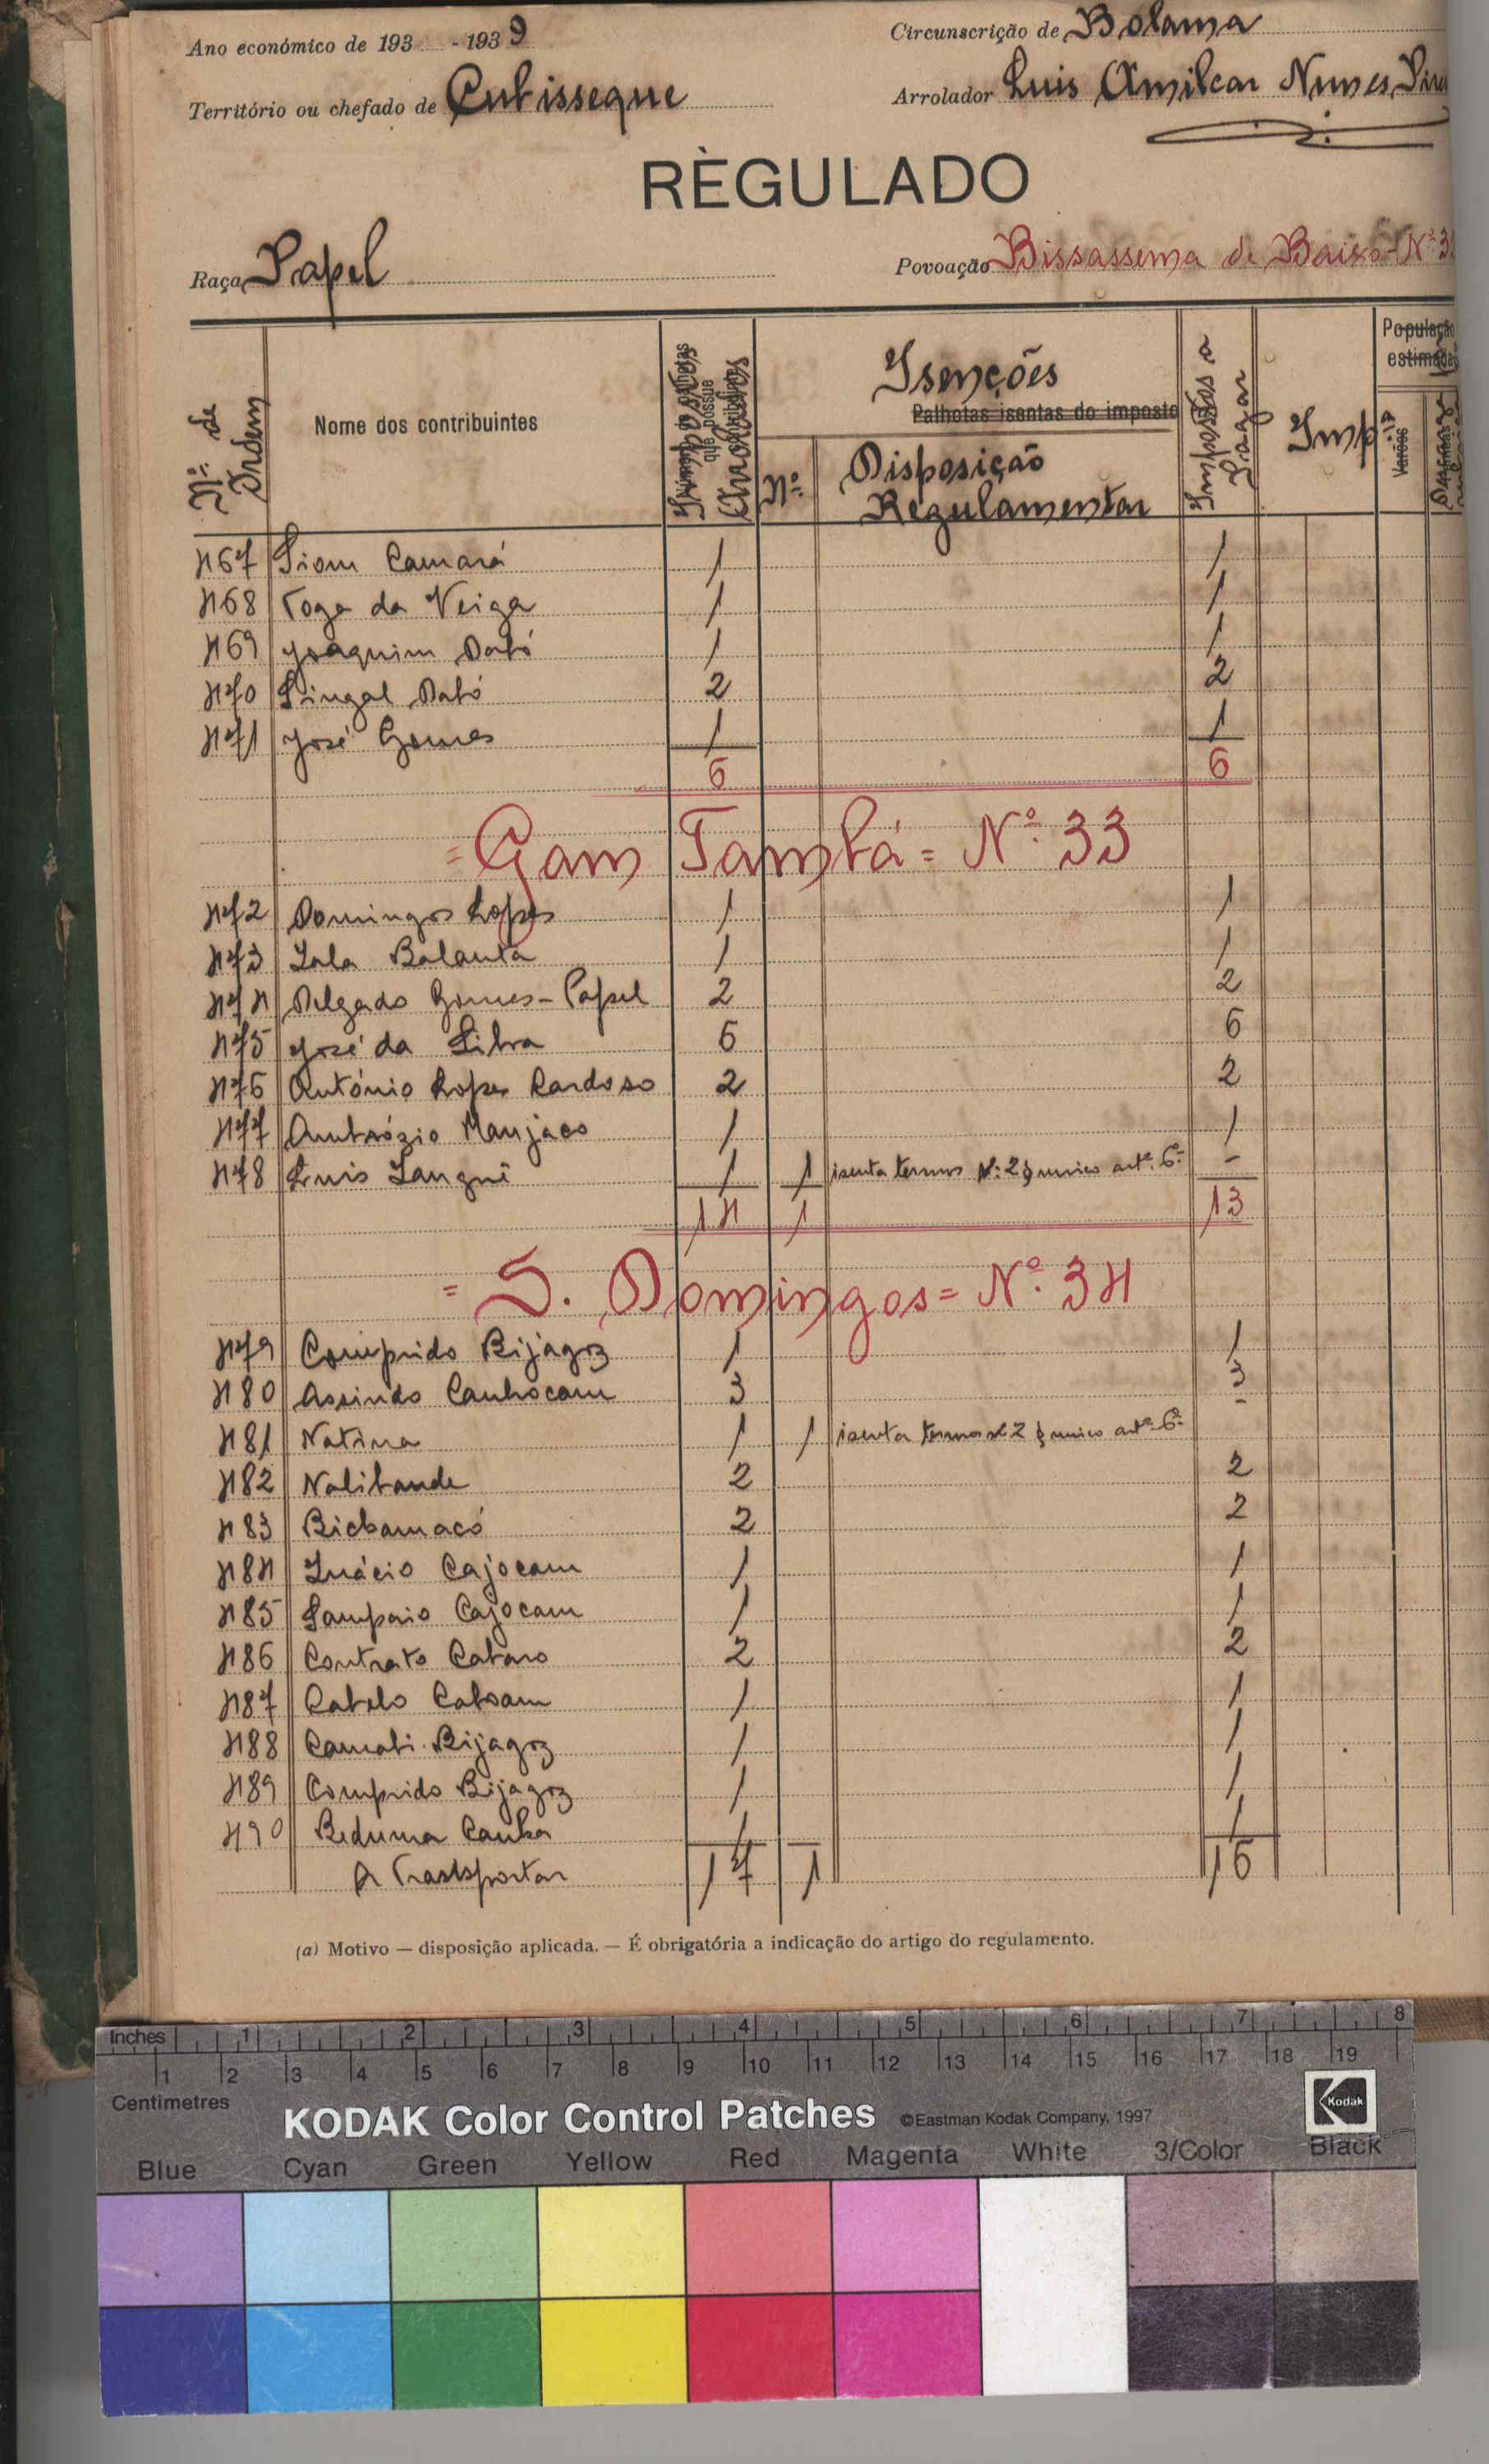 Ano económico de 193 - 1939
Circunscrição de Bolama
Território ou chefado de Cubisseque
Arrolador Luis Amilcar Nunes
RÈGULADO
Raça Papel
Povoação Bissassema de Baixo - Nº 3
Nº de Ordem
Nome dos contribuintes
Impostos
Isenções
Palhotas isentas do imposto
Nº
Disposição Regulamentar
Impostos a Pagar
Imp
População
Varões
467 Siom Camará 1 1
468 Toga da Veiga 1 1
469 Joaquim Dabó 1 1
470 Singal Dabó 2 2
471 José Gomes 1 1
6 6
= Gam Tambá = Nº 33
472 Domingos Lopes 1 1
473 Lala Balanta 1 1
474 Delgado Gomes - Papel 2 2
475 José da Silva 6 6
476 António Lopes Cardoso 2 2
477 Ambrózio Manjaco 1 1
478 Luis Sanguê 1 1 isenta termos nº 2 § unico artº 6º -
14 1 13
= S. Domingos = Nº 34
479 Comprido Bijagoz 1 1
480 Assindo Canhocam 3 3
481 Natina 1 1 isenta termos nº 2 § unico artº 6º -
482 Nalibande 2 2
483 Bicbamacó 2 2
484 Inácio Cajocam 1 1
485 Sampaio Cajocam 1 1
486 Contrato Cabaro 2 2
487 Cabelo Caboam 1 1
488 Camabi Bijagoz 1 1
489 Comprido Bijagoz 1 1
490 Beduma Canha 1 1
A Trastsportar 17 1 16
(a) Motivo — disposição aplicada. — É obrigatória a indicação do artigo do regulamento.
Inches 1 2 3 4 5 6 7 8
1 2 3 4 5 6 7 8 9 10 11 12 13 14 15 16 17 18 19
Centimetres
KODAK Color Control Patches ©Eastman Kodak Company, 1997 Kodak
Blue Cyan Green Yellow Red Magenta White 3/Color Black